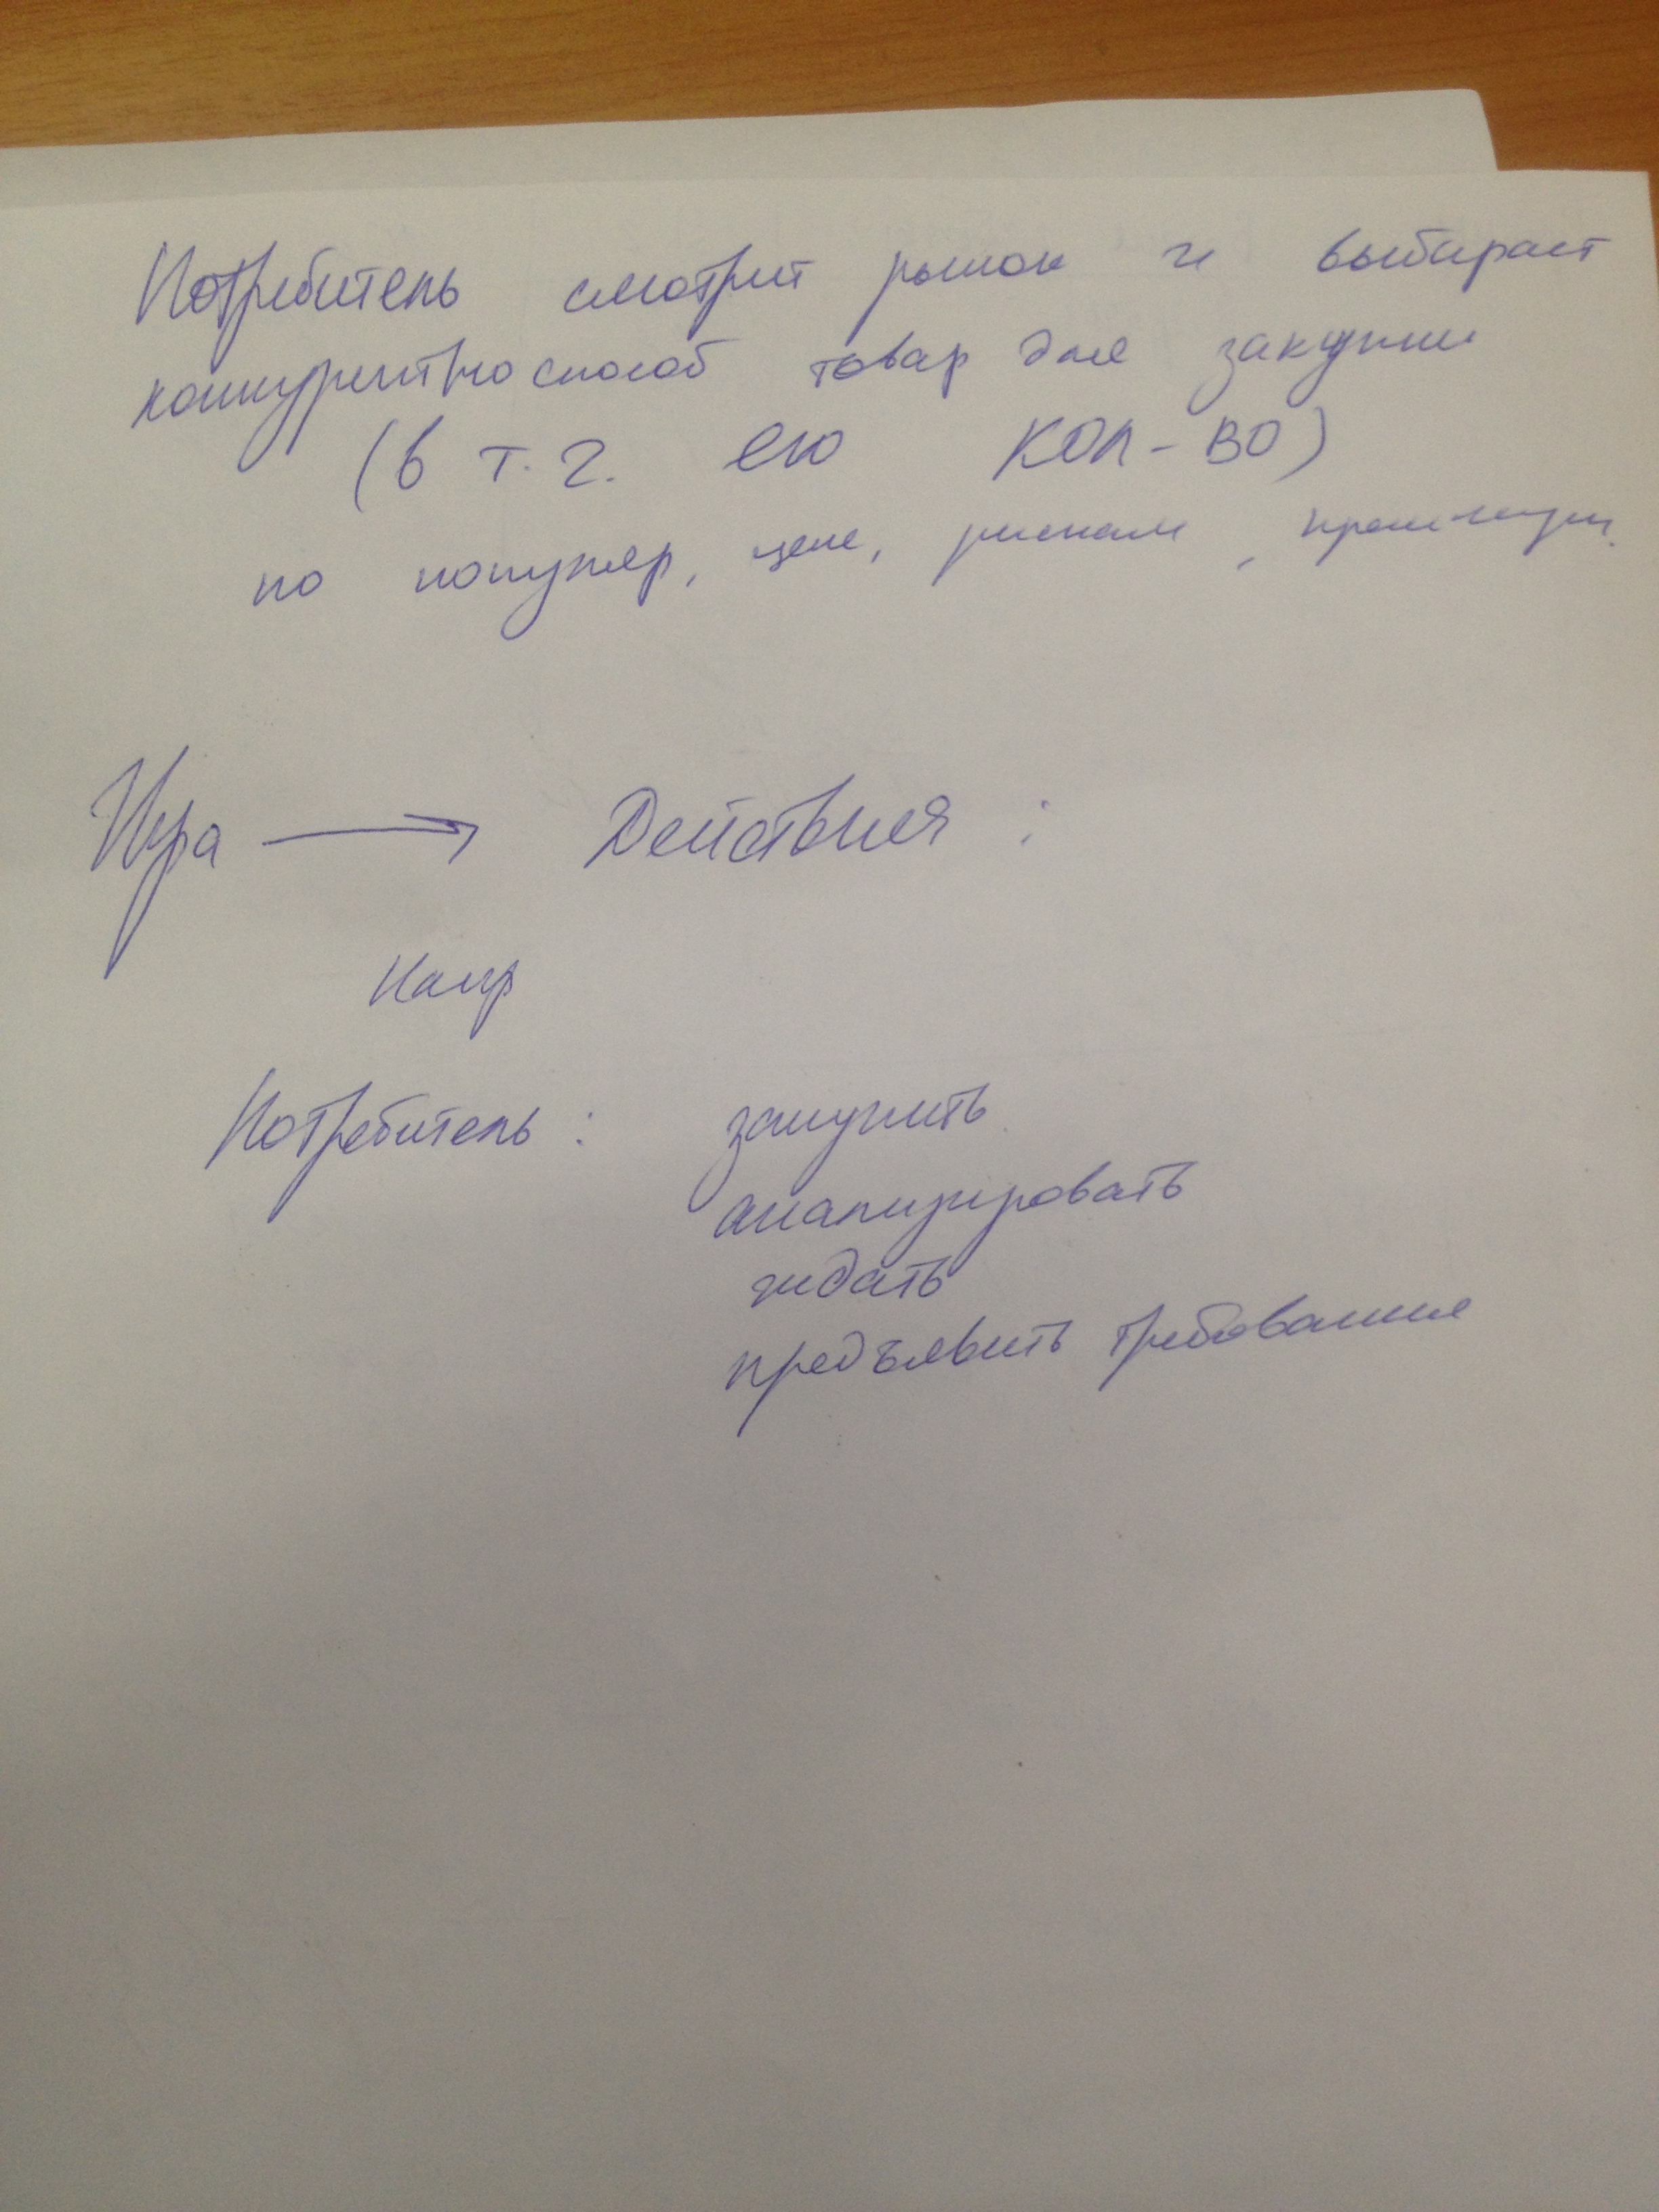 Потребитель смотрит рынок и выбирает
конкурентноспособ товар для закупки
(в т.ч. его кол-во)
по популяр, цене, рискам,
Игра → Действия:
Напр
Потребитель: закупить
анализировать
ждать
предъявить требования